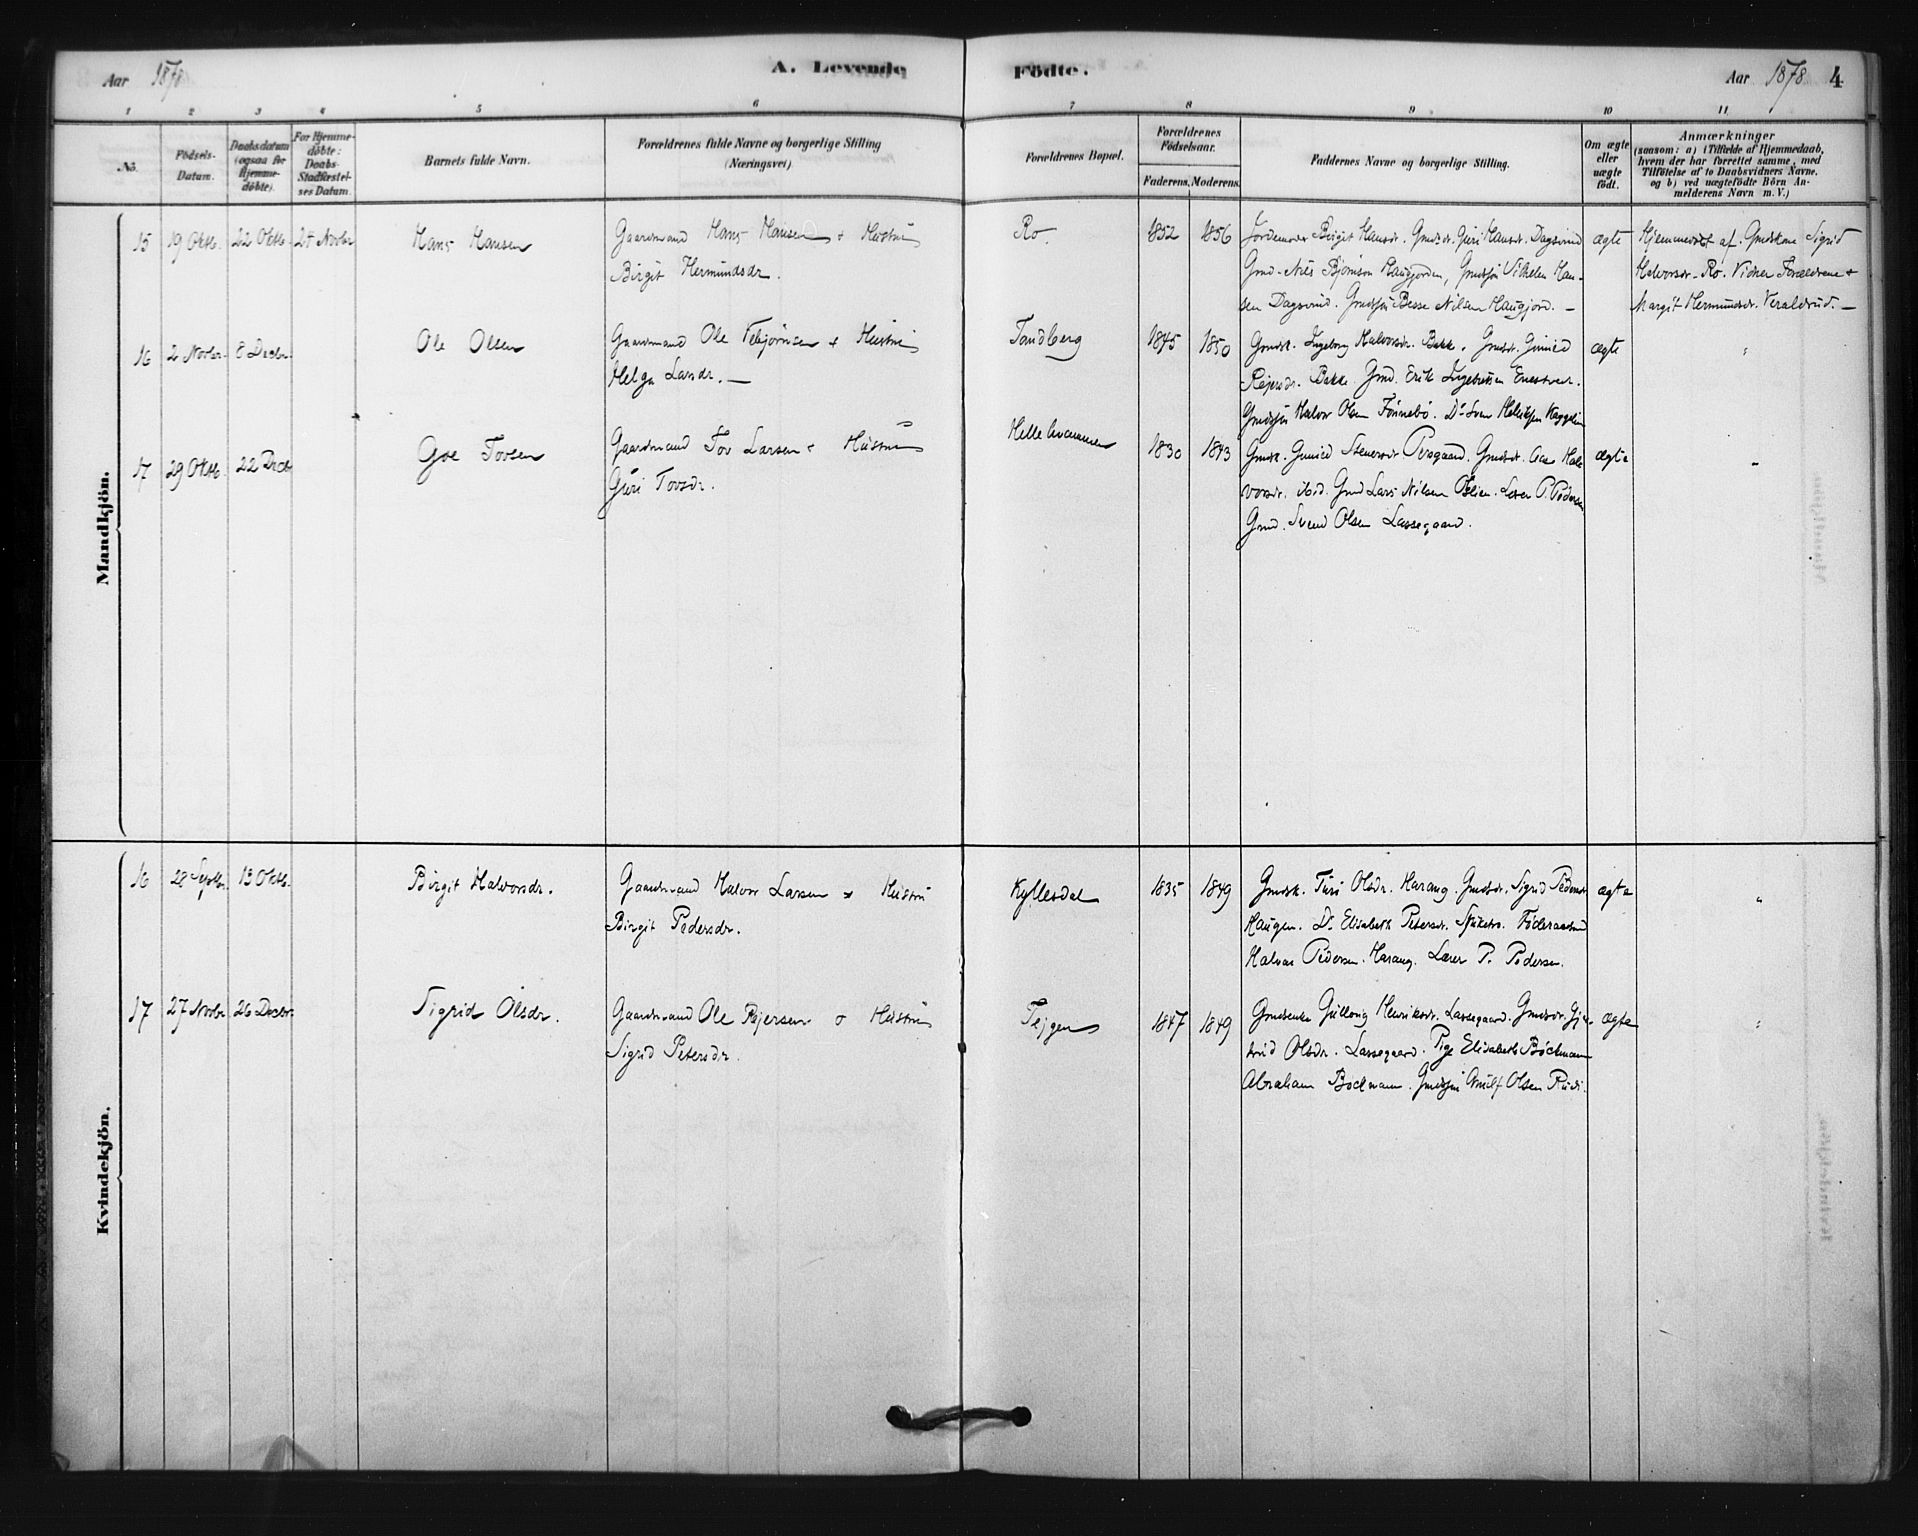 Aar 1878
A. Levende Födte.
Aar 1878 4
1 2 3 4 5 6 7 8 9 10 11
No.
Födsels-
Datum.
Daabsdatum
(ogsaa for
Hjemme-
döbte).
For Hjemme-
döbte:
Daabs-
Stadfæstel-
ses Datum
Barnets fulde Navn.
Forældrenes fulde Navne og borgerlige Stilling
(Næringsvei).
Forældrenes Bopæl.
Forældrenes
Födselsaar.
Faderens. Moderens.
Faddernes Navne og borgerlige Stilling.
Om ægte
eller
uægte
födt.
Anmærkninger
(saasom: a) i Tilfælde af Hjemmedaab,
hvem der har forrettet samme, med
Tilföielse af to Daabsvidners Navne,
og b) ved uægtefödte Börn An-
melderens Navn m. V.)
Mandkjön.
15 19 Oktb. 22 Oktb. 24 Novbr
Hans Hansen
Gaardmand Hans Hansen + Hustru
Birgit Hermundsdr.
Ro.
1852 1856
Jordemoder Birgit Hansdr. Gmdsdr. Guri Hansdr. Dagsvind
Gmd. Nils Bjørnsen Haugjorden, Gmdssøn Vilhelm Han-
sen Dagsvind. Gmdssøn Besse Nilsen Haugjord. —
ægte
Hjemmedøbt af Gmdskone Sigrid
Halvorsdr. Ro. Vidner Forældrene +
Margit Hermundsdr. Veraldrud. —
16 2 Novbr. 8 Decbr.
Ole Olsen
Gaardmand Ole Vebjørnsen + Hustru
Helga Larsdr. —
Tandberg
1845 1850
Gmdsk. Ingeborg Halvorsdr. Bakke. Gmdsdr. Gunild
Reiersdr. Bakke. Gmd. Erik Ingebretsen
Gmdssøn Halvor Olsen Fønnebø. Do Sven Helliksen
ægte "
17 29 Oktb. 22 Decb
Goe Tovsen
Gaardmand Tov Larsen + Hustru
Guri Tovsdr.
1830 1843
Gmdsk. Gunild Stenersdr Persgaard. Gmdsdr. Ase Hal-
vorsdr. ibid. Gmd Lars Nilsen Lærer P. Pedersen
Gmd. Svend Olsen Lassegaard.
ægte "
Kvindekjön.
16 28 Septbr. 13 Oktb.
Birgit Halvorsdr.
Gaardmand Halvor Larsen + Hustru
Birgit Pedersdr.
Kyllesdal
1835 1849
Gmdsk. Turi Olsdr. Harang. Gmdsdr. Sigrid Pedersdr
Haugen. Do Elisabeth Petersdr. Føderaadsmd
Halvor Pedersen. Harang. Lærer P. Pedersen.
ægte "
17 27 Novbr. 26 Decbr.
Sigrid Olsdr.
Gaardmand Ole Reiersen o Hustru
Sigrid Petersdr.
Tejgen
1847 1849
Gmdsenke Gullaug Henriksdr. Lassegaard. Gmdsdr. Gjer-
trud Olsdr. Lassegaard. Pige Elisabeth Böckmann
Abraham Bockmann. Gmdssøn Olsen Rudi.
ægte "